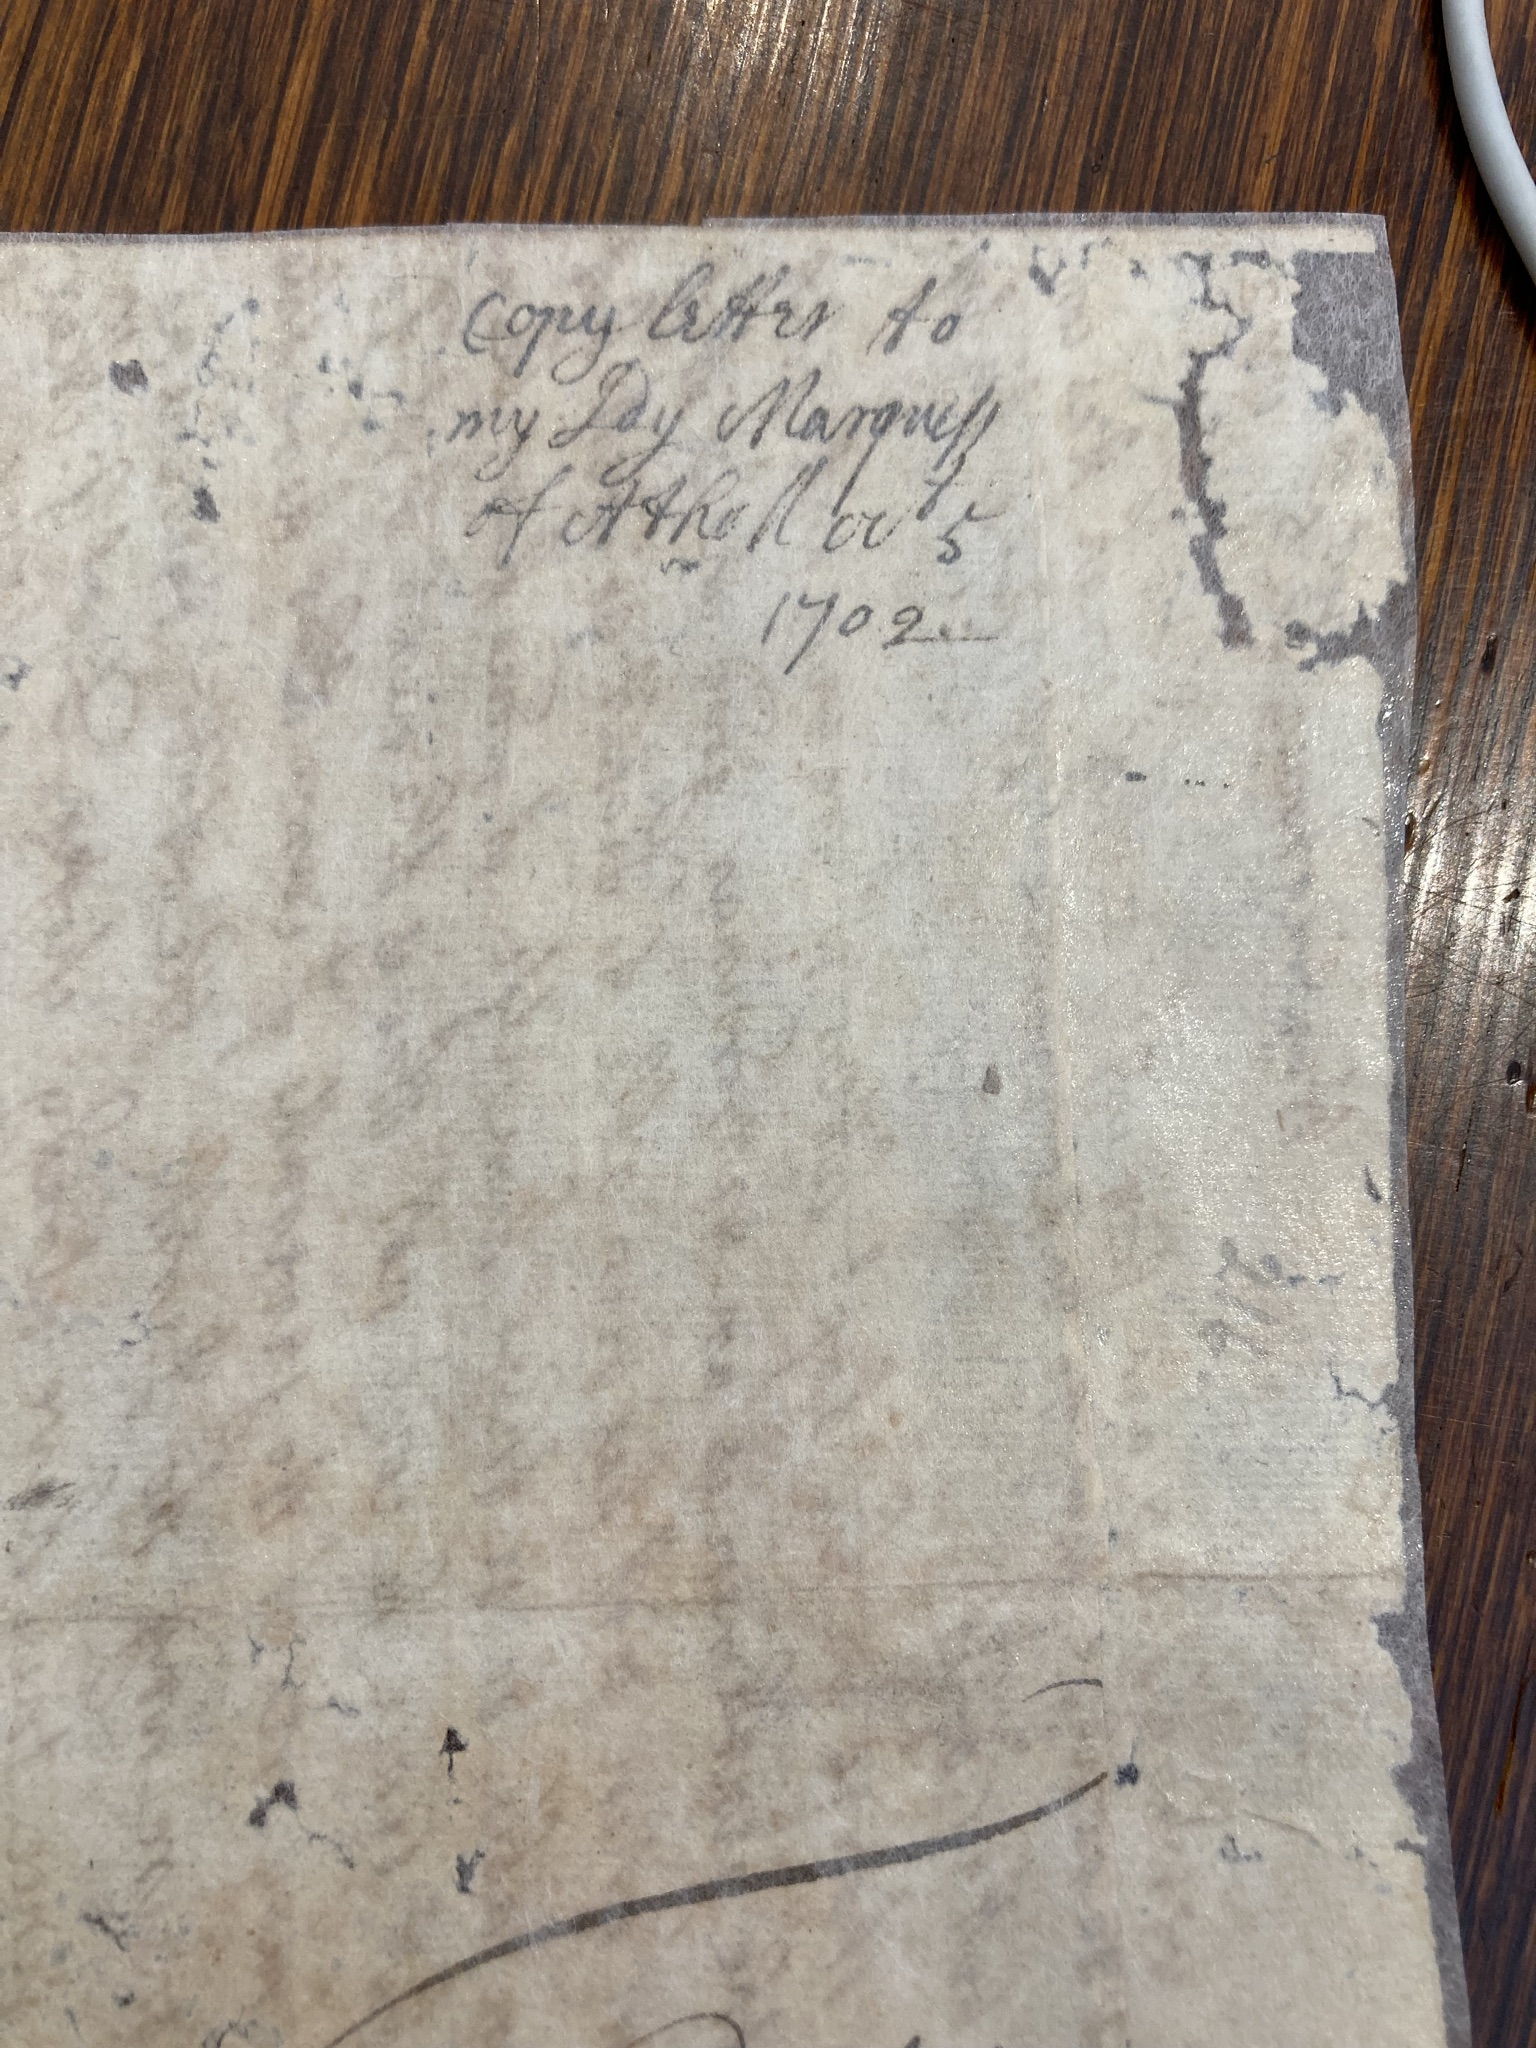 Copy letter to
my Ldy Marquess
of Atholl oct 5
1702